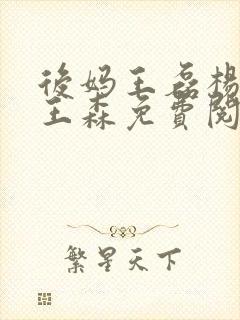 後妈王磊杨
王森免費閱
繁星天下